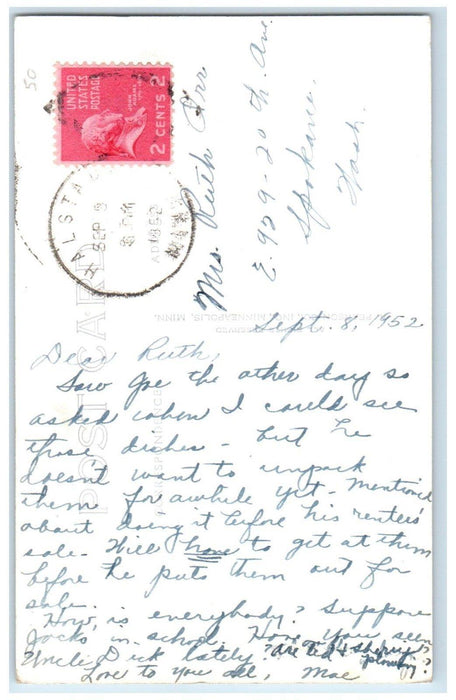 50
UNITED
STATES
POSTAGE
JOHN
ADAMS
2 CENTS 2
HALSTAD
SEP 9
PM
1952
MINN
Mrs. Ruth Orr
E. 929-20 th. Ave.
Spokane,
Wash.
POST CARD
MINNEAPOLIS, MINN.
Sept. 8, 1952
Dear Ruth,
Saw Joe the other day so
asked when I could see
those dishes - but he
doesn't want to unpack
them for awhile yet - Mentioned
about doing it before his renter's
sale - Will have to get at them
before he puts them out for
sale.
How, is everybody? Suppose
Jack's in school. Have you seen
Uncle Dick lately? Are Ed & Sherry
Love to you all, Mae